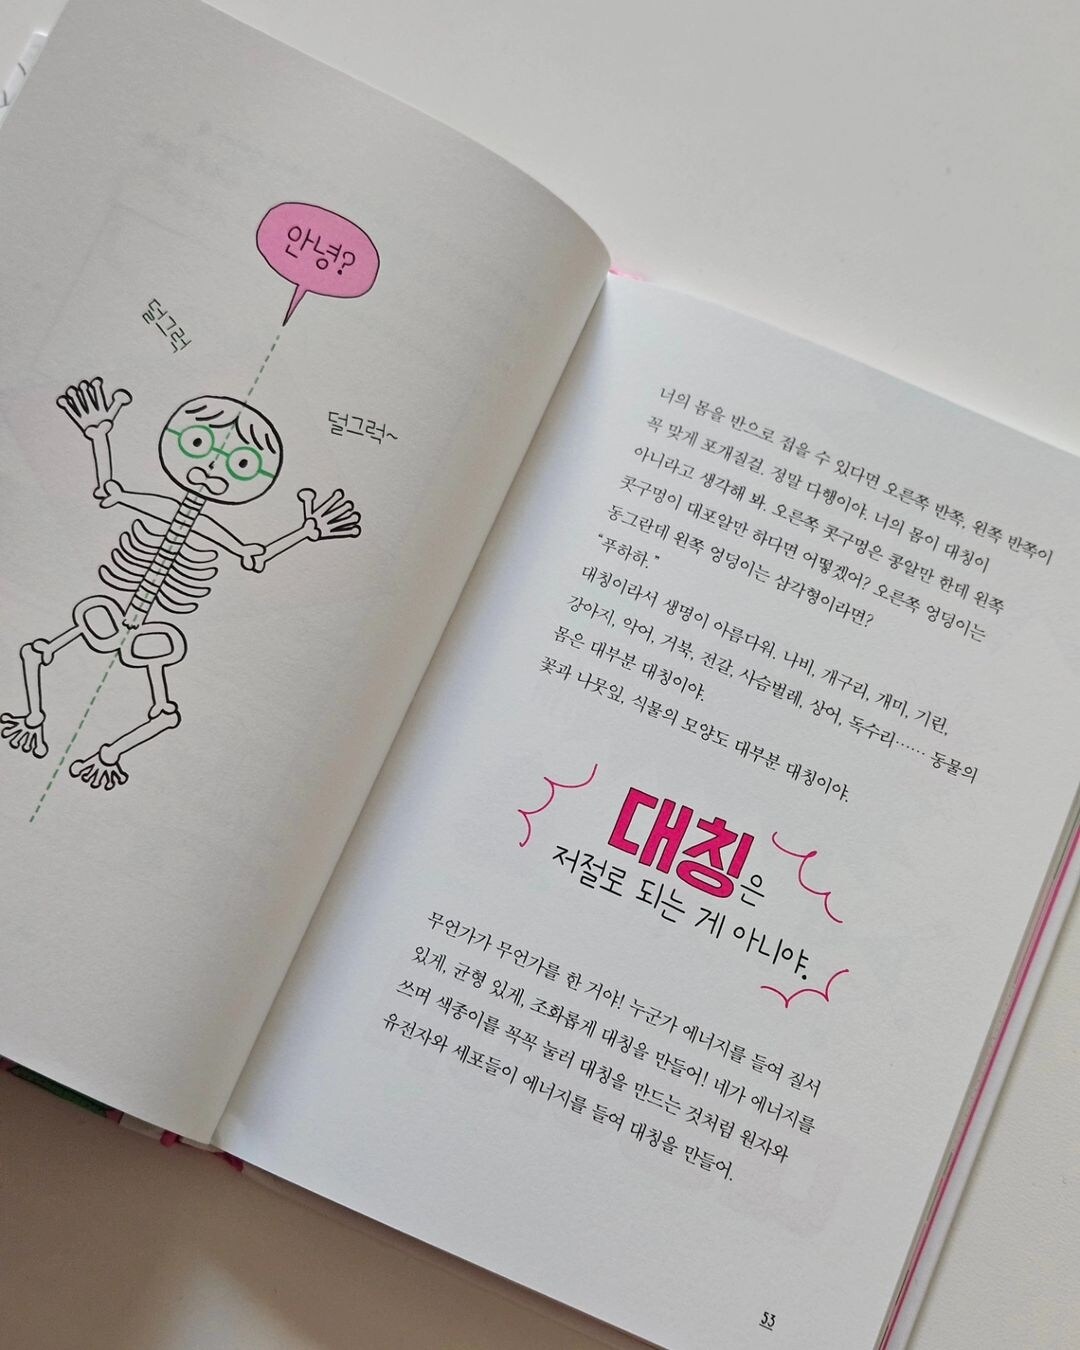 안녕?
덜그럭
덜그럭~
너의 몸을 반으로 접을 수 있다면 오른쪽 반쪽, 왼쪽 반쪽이
꼭 맞게 포개질걸. 정말 다행이야. 너의 몸이 대칭이
아니라고 생각해 봐. 오른쪽 콧구멍은 콩알만 한데 왼쪽
콧구멍이 대포알만 하다면 어떻겠어? 오른쪽 엉덩이는
동그란데 왼쪽 엉덩이는 삼각형이라면?
“푸하하.”
대칭이라서 생명이 아름다워. 나비, 개구리, 개미, 기린,
강아지, 악어, 거북, 전갈, 사슴벌레, 상어, 독수리…… 동물의
몸은 대부분 대칭이야.
꽃과 나뭇잎, 식물의 모양도 대부분 대칭이야.
대칭은
저절로 되는 게 아니야.
무언가가 무언가를 한 거야! 누군가 에너지를 들여 질서
있게, 균형 있게, 조화롭게 대칭을 만들어! 네가 에너지를
쓰며 색종이를 꼭꼭 눌러 대칭을 만드는 것처럼 원자와
유전자와 세포들이 에너지를 들여 대칭을 만들어.
53